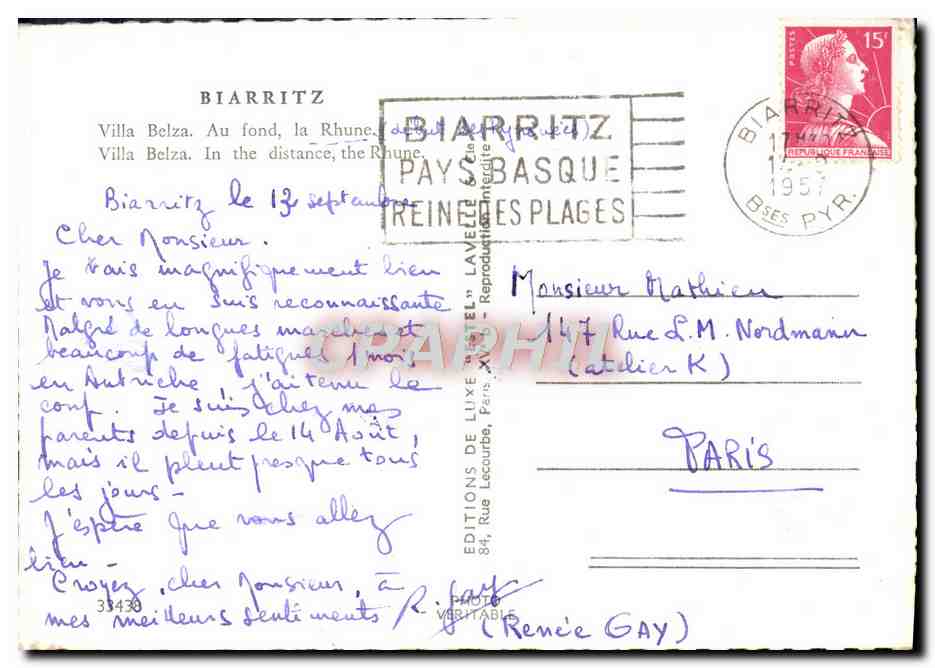 BIARRITZ
Villa Belza. Au fond, la Rhune. (début des Pyrénées)
Villa Belza. In the distance, the Rhune.
Biarritz le 13 septembre
Cher Monsieur.
Je vais magnifiquement bien
et vous en suis reconnaissante
Malgré de longues marches et
beaucoup de fatigues 1 mois
en Autriche, j'ai tenu le
coup. Je suis chez mes
parents depuis le 14 Août,
mais il pleut presque tous
les jours -
J'espère que vous allez
bien -
Croyez, cher Monsieur, à
mes meilleurs sentiments
R. Gay
(Renée GAY)
33438
EDITIONS DE LUXE "ESTEL" LAVELLE & Cie
84, Rue Lecourbe, Paris XV - Reproduction Interdite
PHOTO
VÉRITABLE
BIARRITZ
PAYS BASQUE
REINE DES PLAGES
BIARRITZ
1957
BSES PYR.
POSTES
15F
REPUBLIQUE FRANCAISE
Monsieur Mathieu
147 Rue L.M. Nordmann
(atelier K)
PARIS
CPARHII